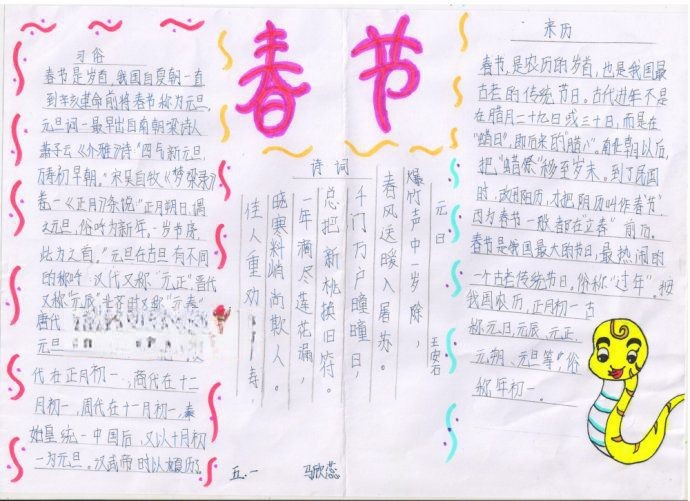 春节
习俗
春节是岁首，我国自夏朝一直
到辛亥革命前将春节称为元旦，
元旦词一最早出自南朝梁诗人
萧子云《介雅》诗"四气新元旦，
万寿初早朝。"宋吴自牧《梦梁录》
卷一《正月》条说"正月朔日，谓
之元旦，俗呼为新年。一岁节序，
此为之首。"元旦在古旦有不同
的称呼，汉代又称"元正"，晋代
又称"元辰"，北齐时又称"元春"
唐代
元旦
代在正月初一，商代在十二
月初一，周代在十一月初一，秦
始皇统一中国后，又以十月初
一为元旦。汉武帝时以
诗词
元日
王安石
爆竹声中一岁除，
春风送暖入屠苏。
千门万户曈曈日
总把新桃换旧符。
一年滴尽莲花漏，
晓寒料峭尚欺人。
佳人重劝 寿，
来历
春节，是农历的岁首，也是我国最
古老的传统节日。古代过年不是
在腊月二十九日或三十日，而是在
"蜡日"，即后来的"腊八"。南北朝以后，
把"蜡祭"移至岁末。到了民国
时，改用阳历，才把阴历叫作春节"，
因为春节一般都在"立春"前历。
春节是我国最大的节日，最热闹的
一个古老传统节日。俗称"过年"。按
我国农历，正月初一古
称元日元辰、元正、
元朔、元旦等，俗
称年初一。
五.一 马欣蕊